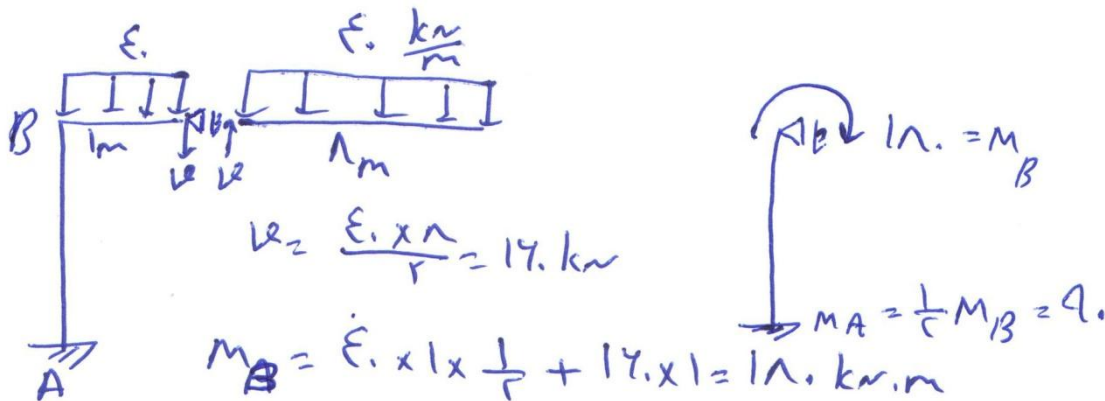 ۴۰
۴۰ kN/m
B
۱m
V
V
۸m
V = ۴۰×۸/۲ = ۱۶۰ kN
M_B = ۴۰ × ۱ × ۱/۲ + ۱۶۰×۱ = ۱۸۰ kN.m
A
۱۸۰ = M_B
M_A = ۱/۲ M_B = ۹۰